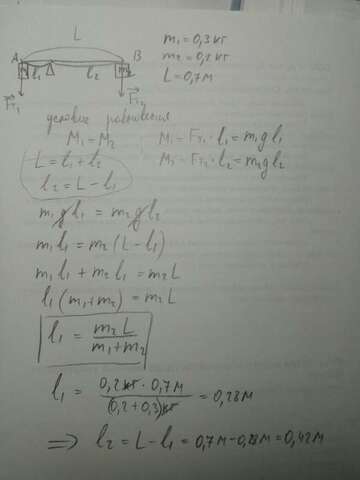 L
A B
m₁ l₁ l₂ m₂
F⃗т₁ F⃗т₂
m₁ = 0,3 кг
m₂ = 0,2 кг
L = 0,7 м
условие равновесия
M₁ = M₂
M₁ = Fт₁ · l₁ = m₁gl₁
M₂ = Fт₂ · l₂ = m₂gl₂
L = l₁ + l₂
l₂ = L – l₁
m₁gl₁ = m₂gl₂
m₁l₁ = m₂(L – l₁)
m₁l₁ + m₂l₁ = m₂L
l₁(m₁+m₂) = m₂L
l₁ = m₂L / m₁+m₂
l₁ = 0,2 кг · 0,7 м / (0,2+0,3) кг = 0,28 м
⇒ l₂ = L – l₁ = 0,7 м – 0,28 м = 0,42 м